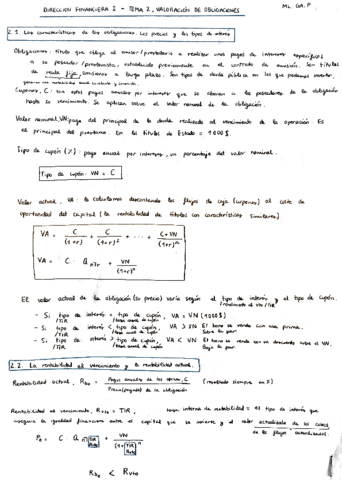 DIRECCIÓN FINANCIERA I - TEMA 2, VALORACIÓN DE OBLIGACIONES
2.1. Las características de las obligaciones. Los precios y los tipos de interés
Obligaciones: título que obliga al emisor/prestatario a realizar unos pagos de intereses específicos
a su poseedor/prestamista, establecido previamente en el contrato de emisión. Son títulos
de renta fija, a largo plazo. Son tipos de deuda pública en los que podemos invertir,
Cupones, C: son estos pagos anuales por intereses que se abonan a los poseedores de la obligación
hasta su vencimiento. Se aplican sobre el valor nominal de la obligación.
Valor nominal, VN: pago del principal de la deuda realizado al vencimiento de la operación. Es
el principal del préstamo. En los títulos de Estado = 1000$.
Tipo de cupón (%): pago anual por intereses, un porcentaje del valor nominal.
Tipo de cupón · VN = C
Valor actual, VA: lo calculamos descontando los flujos de caja (cupones) al coste de
oportunidad del capital (la rentabilidad de títulos con características similares)
VA = C/(1+r) + C/(1+r)² + ... + C+VN/(1+r)ⁿ
VA = C · a n⌉r + VN/(1+r)ⁿ
El valor actual de la obligación (su precio) varía según el tipo de interés y el tipo de cupón.
- Si tipo de interés = tipo de cupón, VA = VN (1000$)
- Si tipo de interés < tipo de cupón, VA > VN El bono se vende con una prima.
- Si tipo de interés > tipo de cupón, VA < VN El bono se vende con un descuento sobre el VN.
2.2. La rentabilidad al vencimiento y la rentabilidad actual.
Rentabilidad actual, = Pagos anuales de los cupones, C / Precio (pagado) de la obligación (resultado siempre en %)
Rentabilidad al vencimiento, Rvto = TIR, tasa interna de rentabilidad = el tipo de interés que
asegura la igualdad financiera entre el capital que se invierte y el valor actualizado de los cobros
de los flujos actualizados.
P₀ = C · a n⌉TIR + VN/(1+TIR)ⁿ
< Rvto